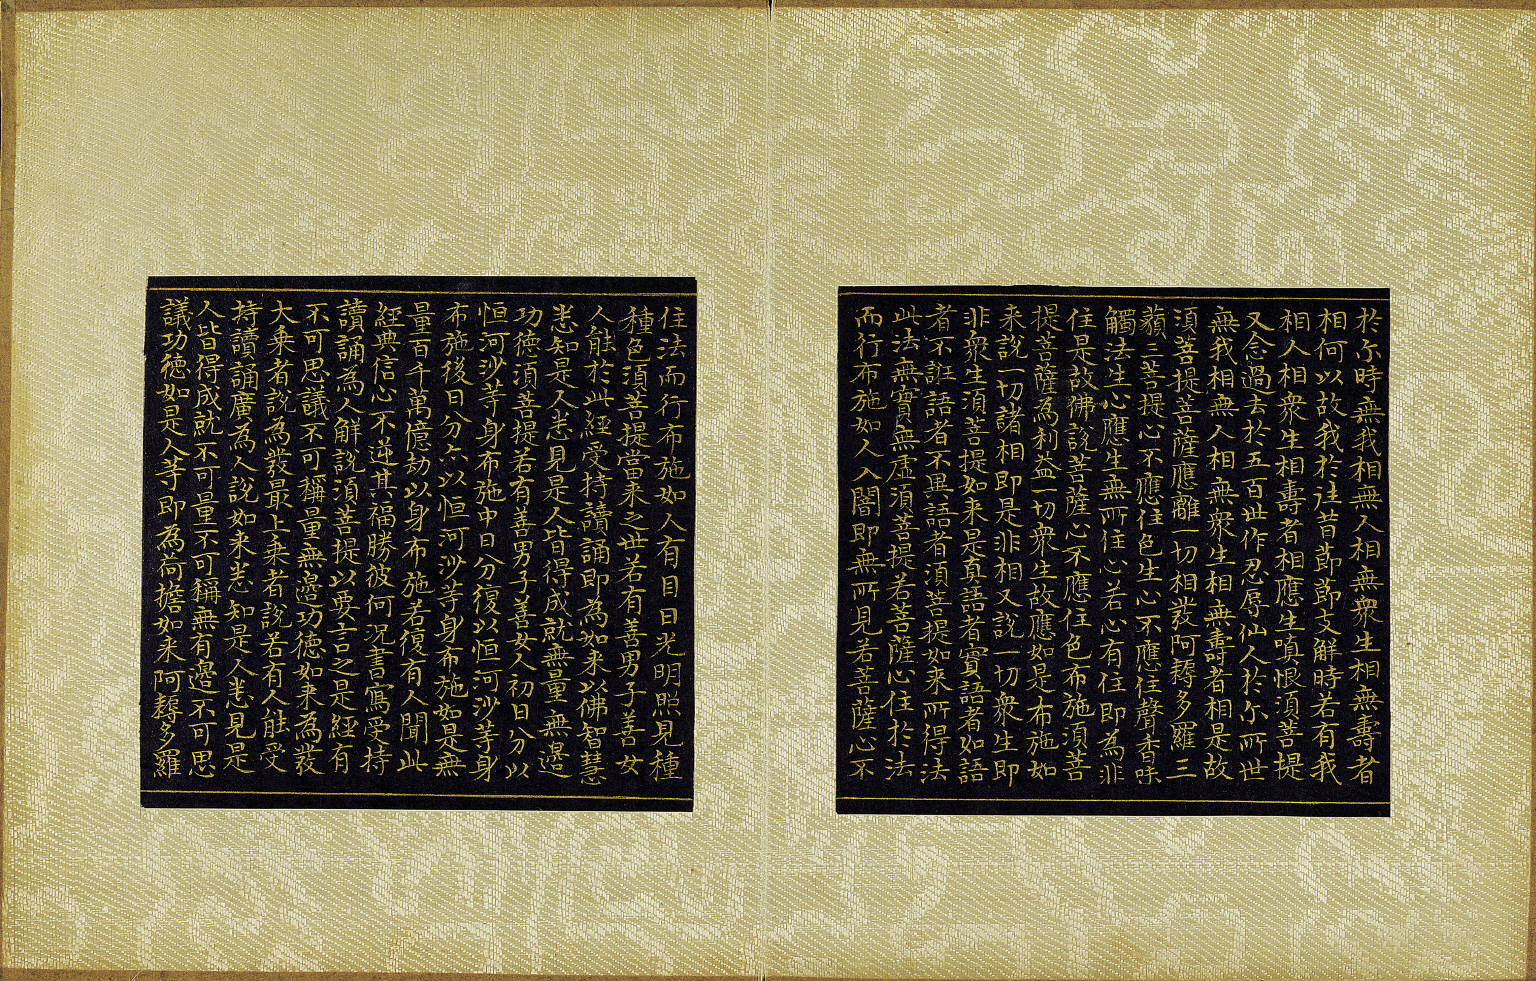 於尔時無我相無人相無衆生相無壽者
相何以故我於往昔節節支解時若有我
相人相衆生相壽者相應生嗔恨須菩提
又念過去於五百世作忍辱仙人於尔所世
無我相無人相無衆生相無壽者相是故
須菩提菩薩應離一切相發阿耨多羅三
藐三菩提心不應住色生心不應住聲香味
觸法生心應生無所住心若心有住即為非
住是故佛說菩薩心不應住色布施須菩
提菩薩為利益一切衆生故應如是布施如
来說一切諸相即是非相又說一切衆生即
非衆生須菩提如来是真語者實語者如語
者不誑語者不異語者須菩提如来所得法
此法無實無虛須菩提若菩薩心住於法
而行布施如人入闇即無所見若菩薩心不
住法而行布施如人有目日光明照見種
種色須菩提當来之世若有善男子善女
人能於此經受持讀誦即為如来以佛智慧
悉知是人悉見是人皆得成就無量無邊
功德須菩提若有善男子善女人初日分以
恒河沙等身布施中日分復以恒河沙等身
布施後日分亦以恒河沙等身布施如是無
量百千萬億劫以身布施若復有人聞此
經典信心不逆其福勝彼何況書寫受持
讀誦為人解說須菩提以要言之是經有
不可思議不可稱量無邊功德如来為發
大乗者說為發最上乗者說若有人能受
持讀誦廣為人說如来悉知是人悉見是
人皆得成就不可量不可稱無有邊不可思
議功德如是人等即為何擔如来阿耨多羅